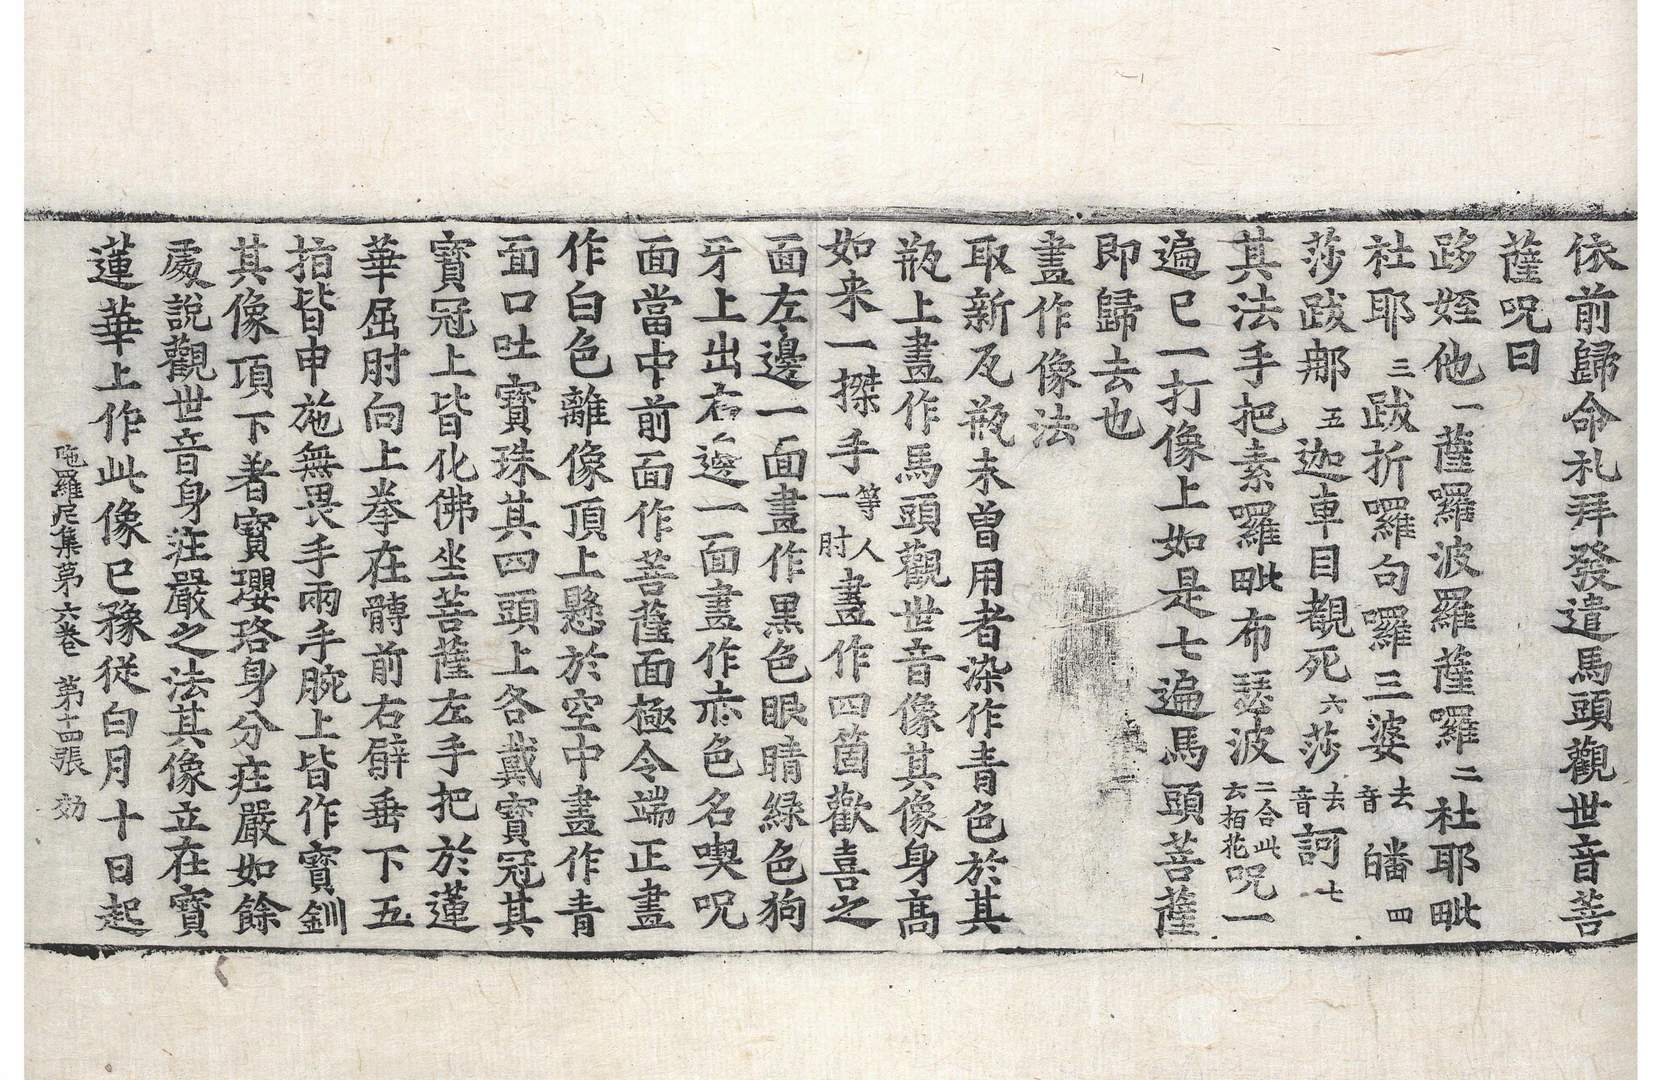 依前歸命礼拜發遣馬頭觀世音菩
薩呪曰
跢姪他一薩囉波羅薩囉二杜耶毗
社耶三跋折囉句囉三婆去音皤四
莎跋郍五迦車目覩死六莎去音訶七
其法手把素囉毗布瑟波二合此云栢花呪一
遍已一打像上如是七遍馬頭菩薩
即歸去也
畫作像法
取新瓦瓶未曾用者染作青色於其
瓶上畫作馬頭觀世音像其像身高
如来一搩手等人一肘畫作四箇歡喜之
面左邊一面畫作黑色眼睛綠色狗
牙上出右邊一面畫作赤色名喫呪
面當中前面作菩薩面極令端正畫
作白色離像頂上懸於空中畫作青
面口吐寶珠其四頭上各戴寶冠其
寶冠上皆化佛坐菩薩左手把於蓮
華屈肘向上拳在髆前右臂垂下五
指皆申施無畏手兩手腕上皆作寶釧
其像項下著寶瓔珞身分莊嚴如餘
處說觀世音身莊嚴之法其像立在寶
蓮華上作此像已豫從白月十日起
陁羅尼集第六卷 第十四張 効